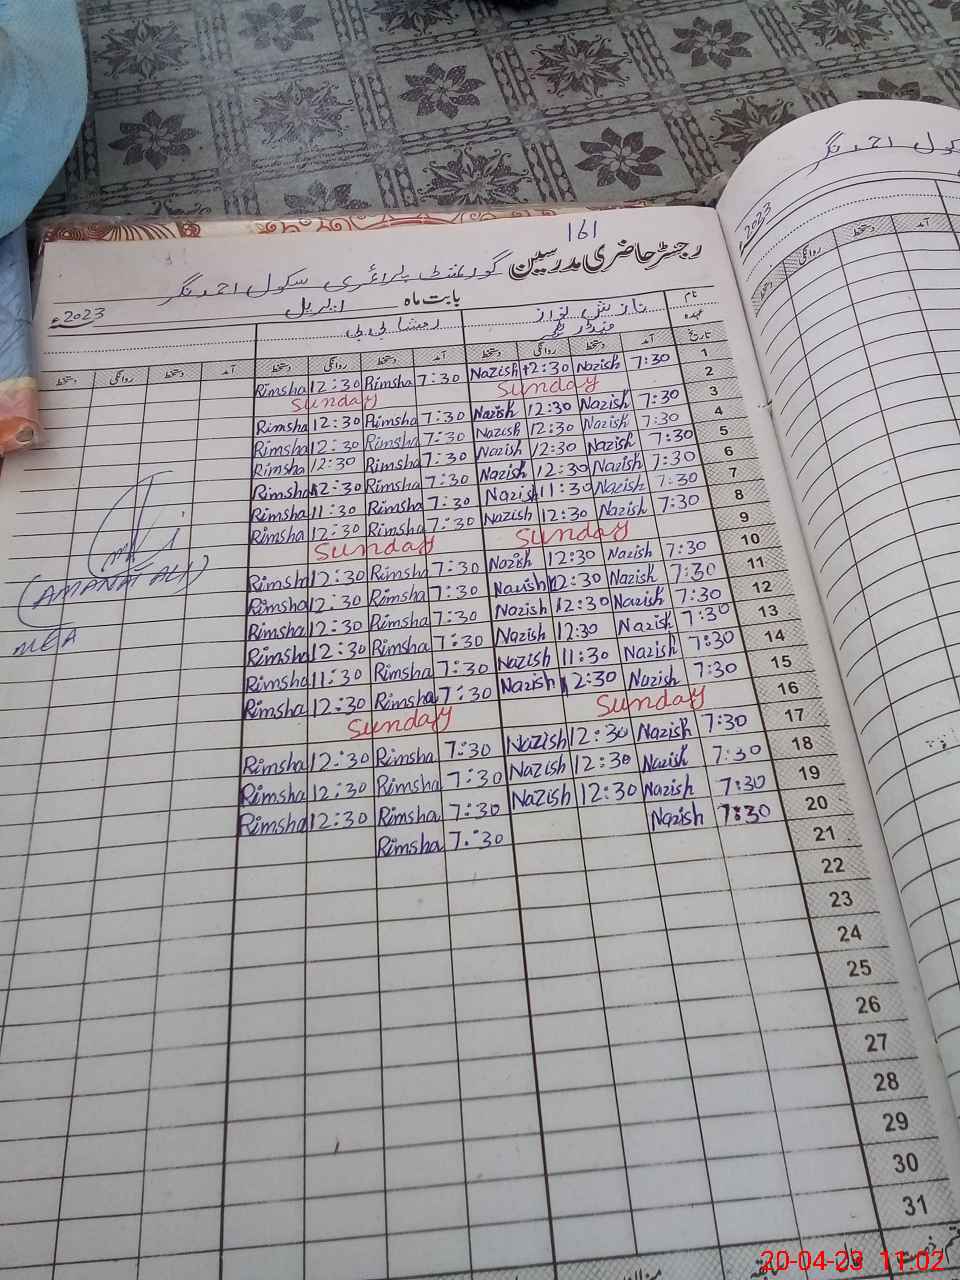 161
رجسٹر حاضری مدرسین گورنمنٹ پرائمری سکول احمد نگر
بابت ماہ اپریل 2023ء
نام نازش نواز رمشا بی بی
عہدہ
تاریخ آمد دستخط روانگی دستخط آمد دستخط روانگی دستخط آمد دستخط روانگی دستخط
Rimsha 12:30 Rimsha 7:30 Nazish 12:30 Nazish 7:30 1
Sunday Sunday 2
Rimsha 12:30 Rimsha 7:30 Nazish 12:30 Nazish 7:30 3
Rimsha 12:30 Rimsha 7:30 Nazish 12:30 Nazish 7:30 4
Rimsha 12:30 Rimsha 7:30 Nazish 12:30 Nazish 7:30 5
Rimsha 12:30 Rimsha 7:30 Nazish 12:30 Nazish 7:30 6
Rimsha 11:30 Rimsha 7:30 Nazish 11:30 Nazish 7:30 7
Rimsha 12:30 Rimsha 7:30 Nazish 12:30 Nazish 7:30 8
Sunday Sunday 9
Rimsha 12:30 Rimsha 7:30 Nazish 12:30 Nazish 7:30 10
Rimsha 12:30 Rimsha 7:30 Nazish 12:30 Nazish 7:30 11
Rimsha 12:30 Rimsha 7:30 Nazish 12:30 Nazish 7:30 12
Rimsha 12:30 Rimsha 7:30 Nazish 12:30 Nazish 7:30 13
Rimsha 11:30 Rimsha 7:30 Nazish 11:30 Nazish 7:30 14
Rimsha 12:30 Rimsha 7:30 Nazish 12:30 Nazish 7:30 15
Sunday Sunday 16
Rimsha 12:30 Rimsha 7:30 Nazish 12:30 Nazish 7:30 17
Rimsha 12:30 Rimsha 7:30 Nazish 12:30 Nazish 7:30 18
Rimsha 12:30 Rimsha 7:30 Nazish 12:30 Nazish 7:30 19
Rimsha 7:30 Nazish 7:30 20
21
22
23
24
25
26
27
28
29
30
31
(AMANAT ALI)
MEA
سکول احمد نگر
2023ء
آمد دستخط روانگی دستخط
20-04-23 11:02